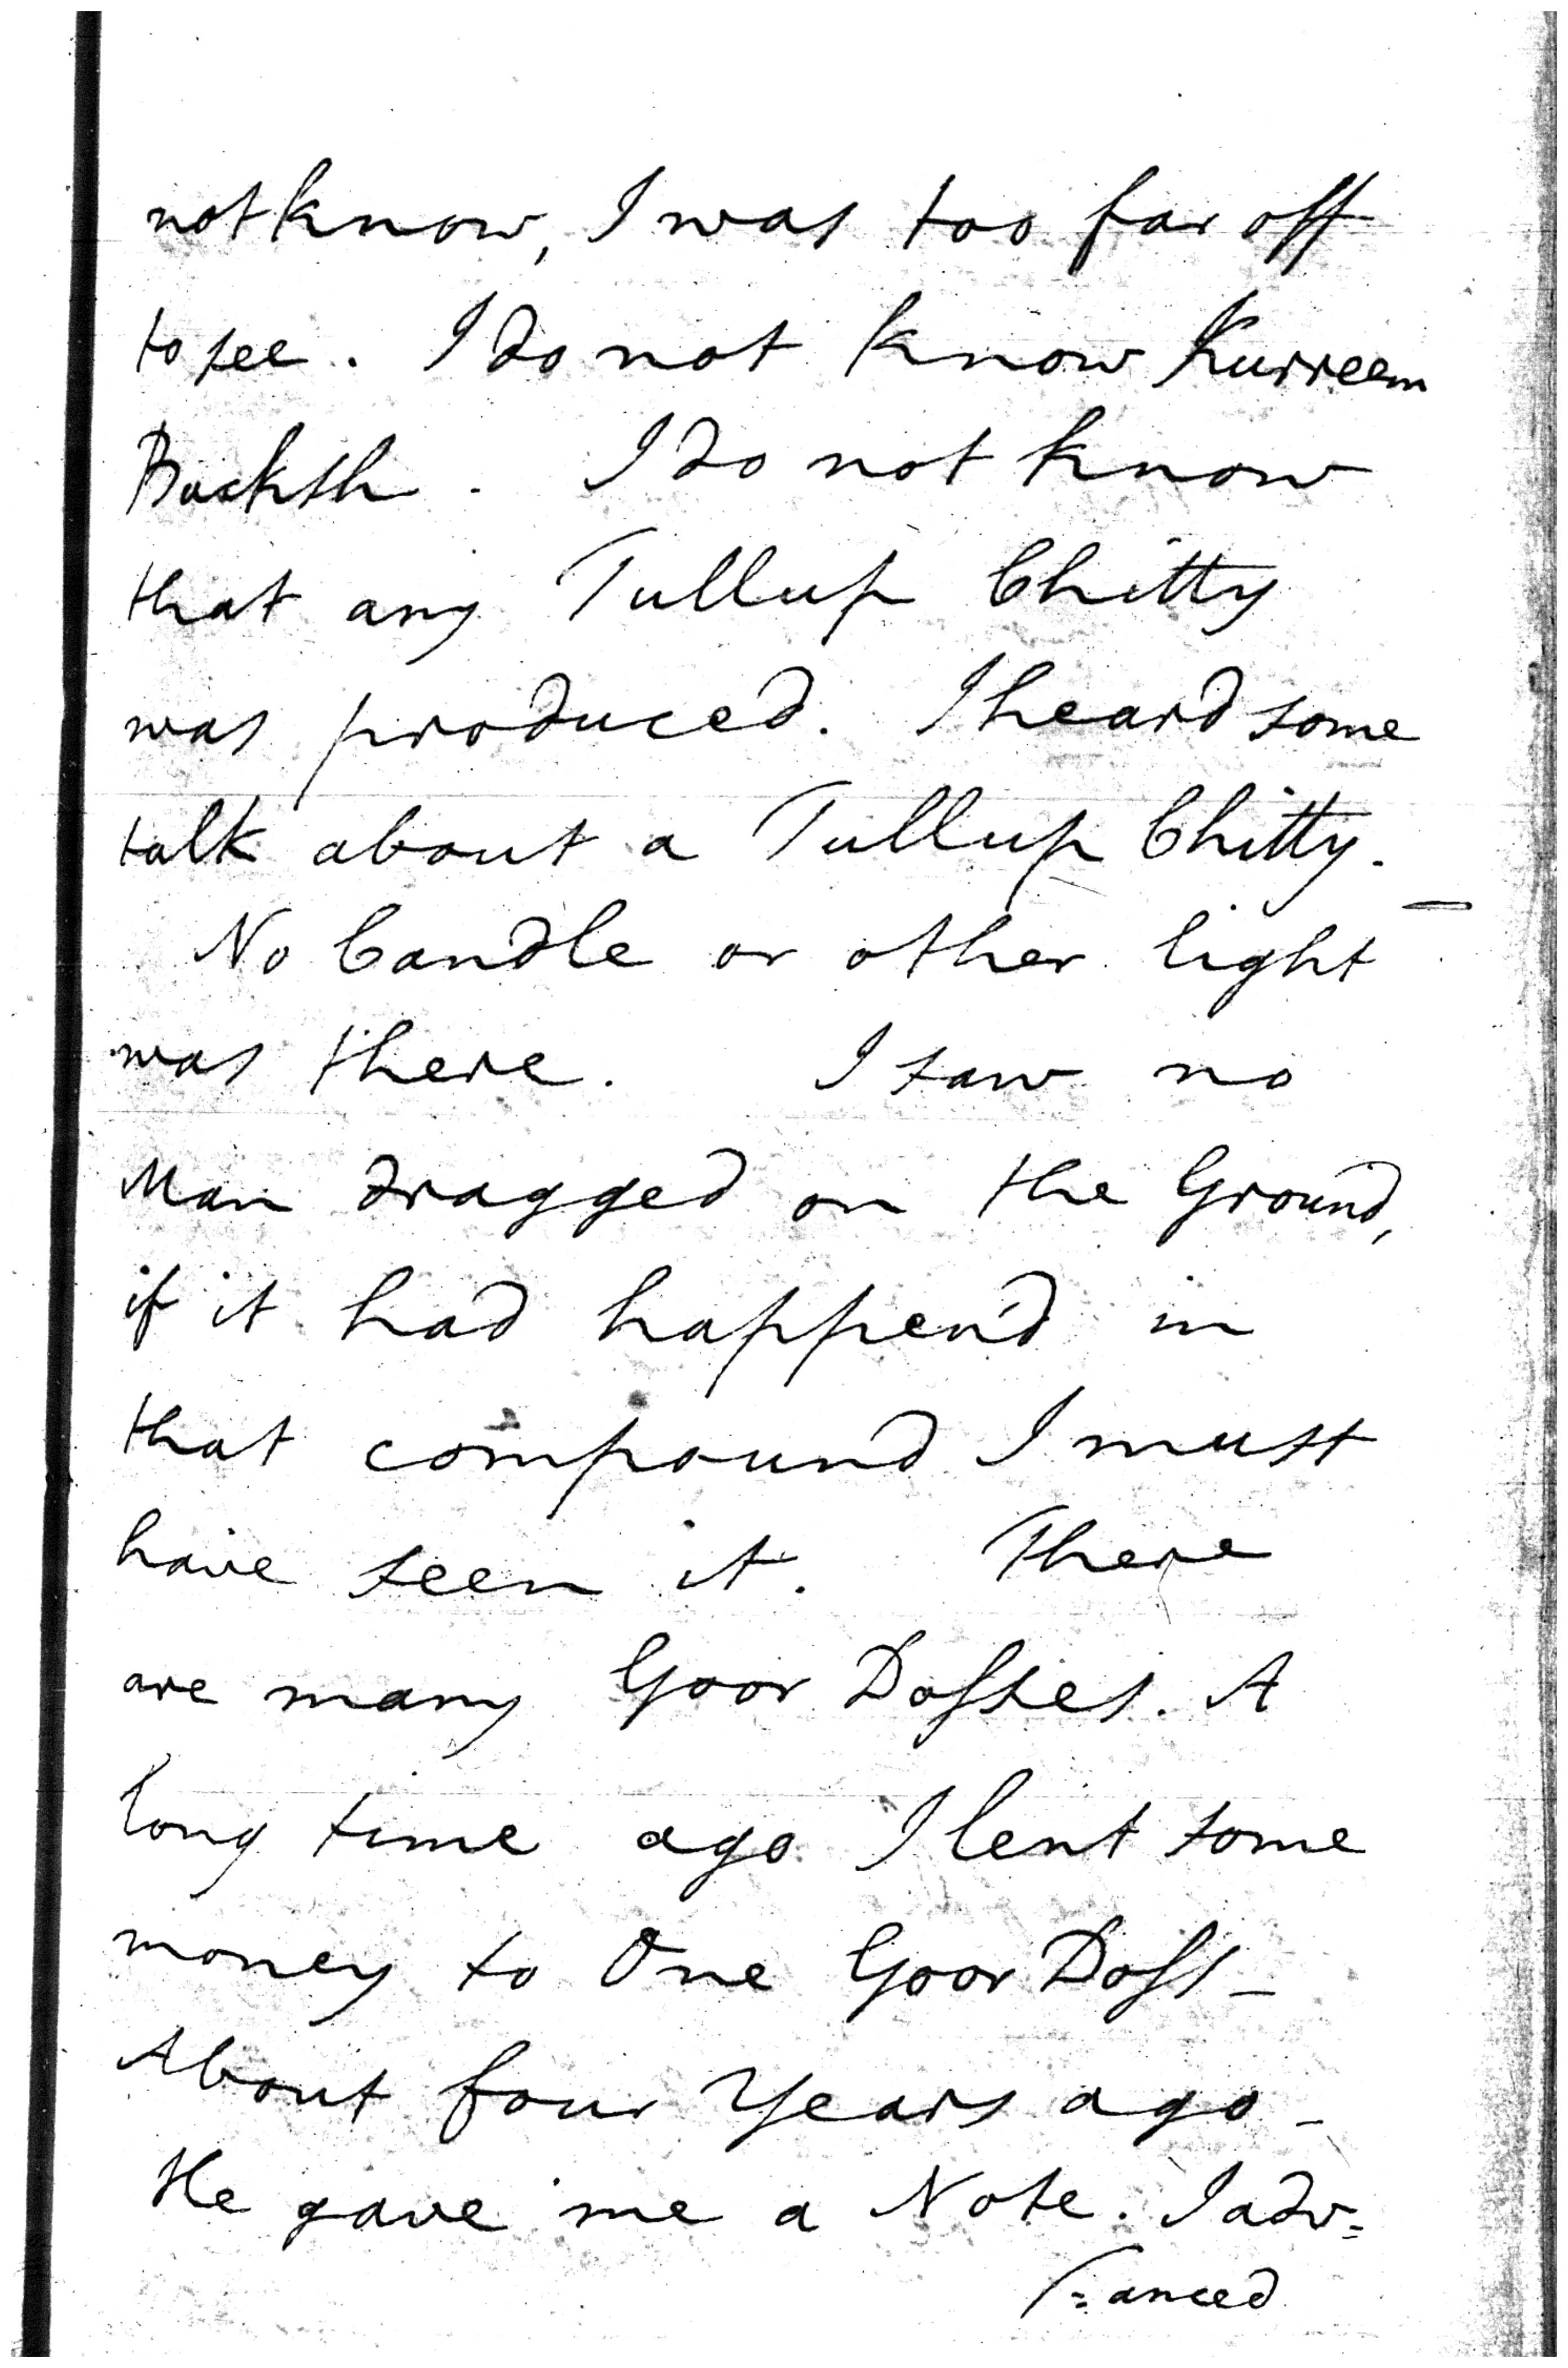 not know, I was too far off
to see. I do not know Kurreem
Bucksh. I do not know
that any Tullup Chitty
was produced. I heard some
talk about a Tullup Chitty. —
No Candle or other light
was there. I saw no
Man dragged on the Ground,
if it had happen'd in
that compound I must
have seen it. There
are many Goor Dosses. A
long time ago I lent some
money to One Goor Doss —
About four Years ago —
He gave me a Note. I adv=
=anced